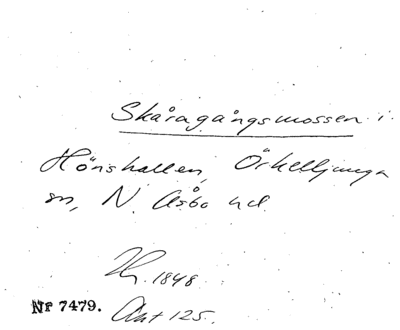 Skåragångsmossen i
Hönshallen, Örkelljunga
sn, N. Åsbo hd.
1848.
Nr 7479. Akt 125.